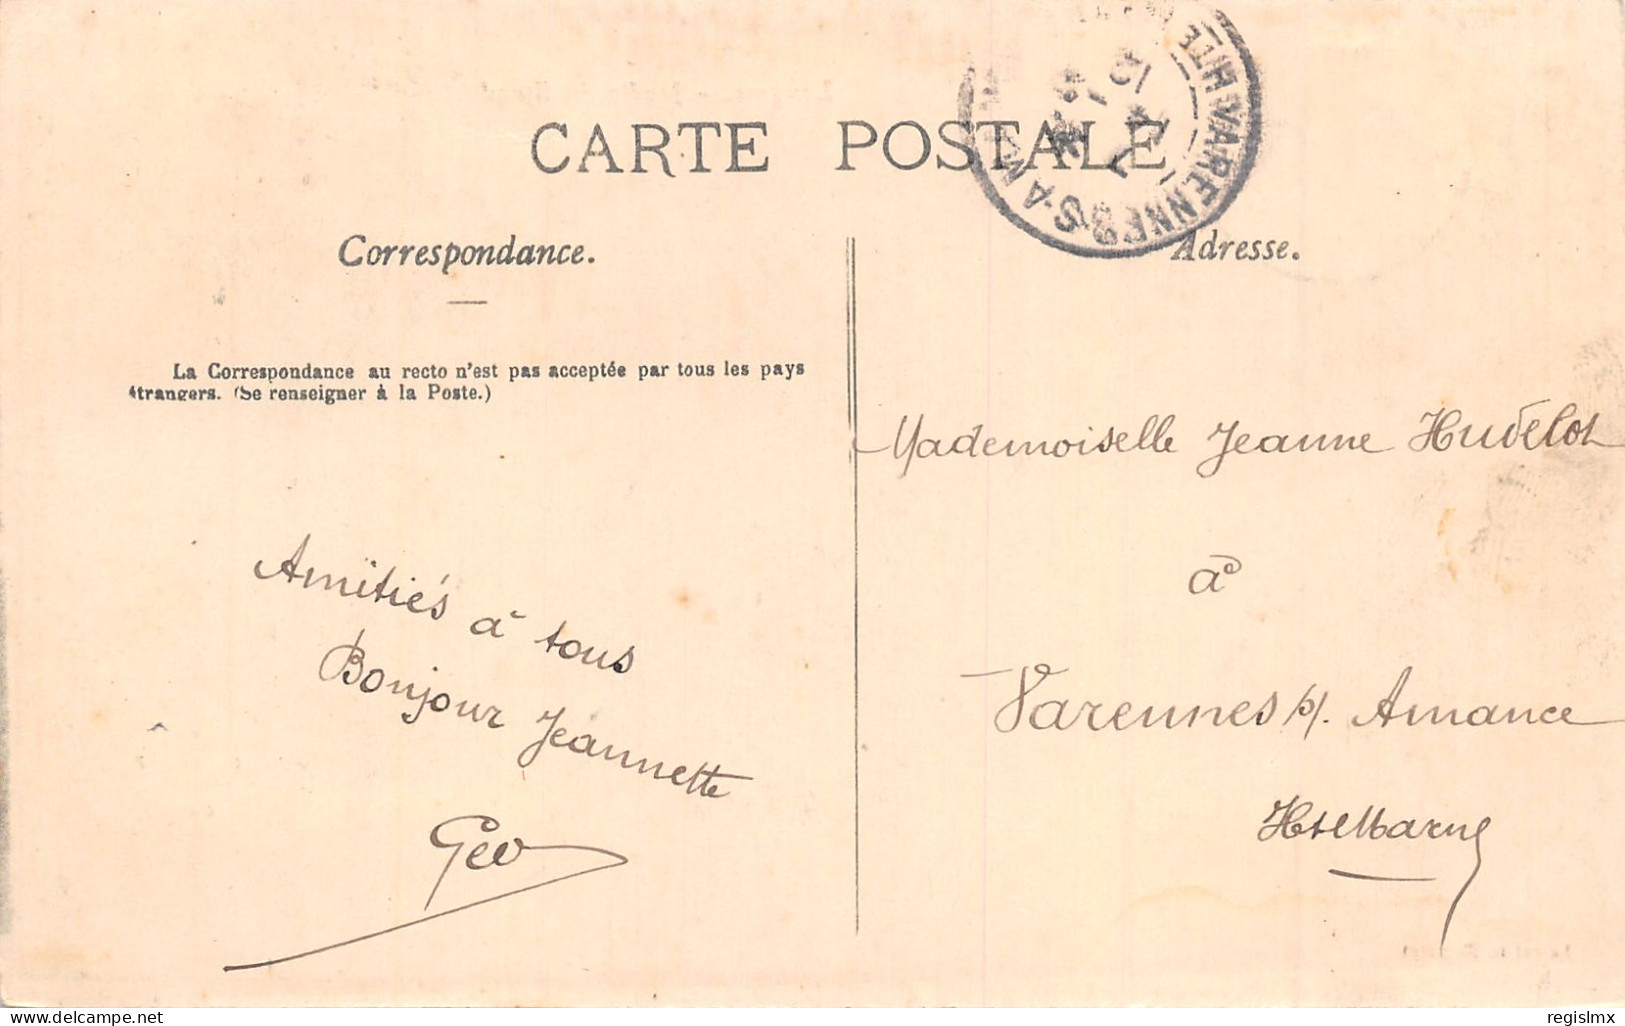 CARTE POSTALE
Correspondance.
Adresse.
La Correspondance au recto n'est pas acceptée par tous les pays
étrangers. (Se renseigner à la Poste.)
VARENNES-S-AMANCE HTE
Mademoiselle Jeanne Hudelot
à
Varennes s/. Amance
Hte Marne
Amitiés à tous
Bonjour Jeannette
Geo
delcampe.net
regislmx